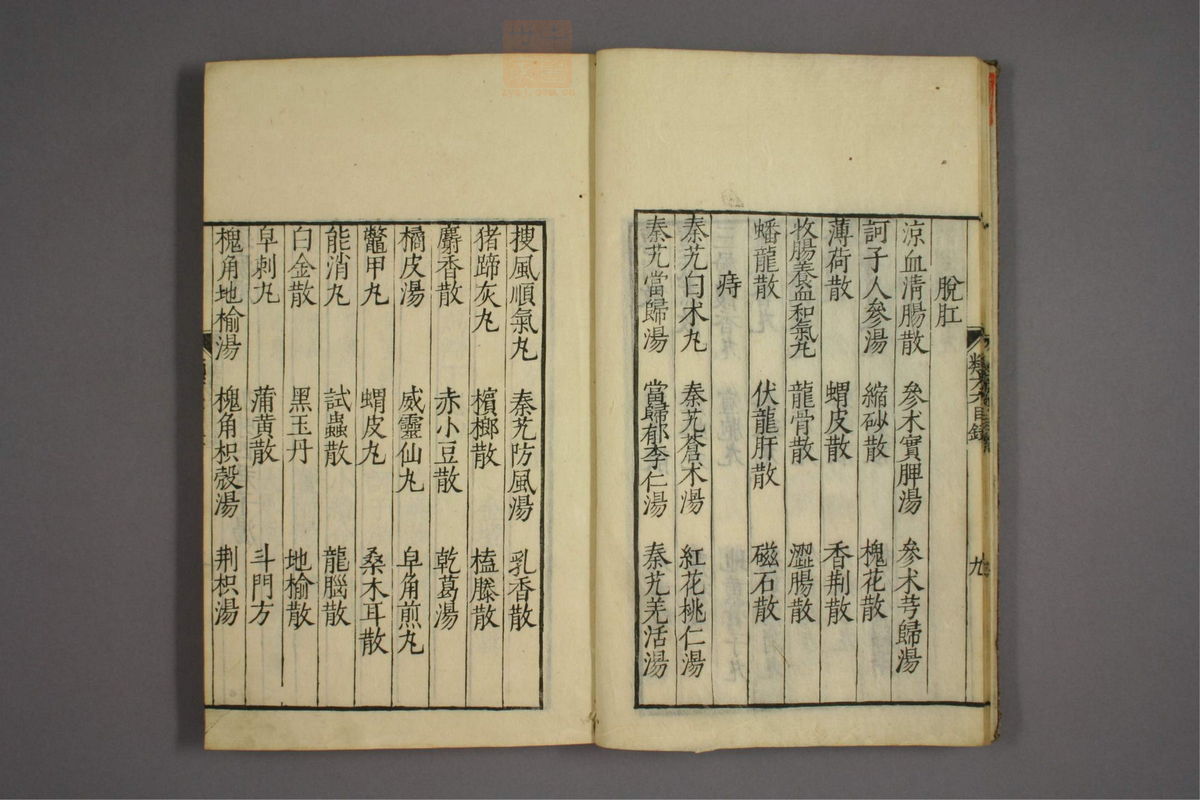 脫肛
涼血清腸散　參朮實脾湯　參朮芎歸湯
訶子人參湯　縮砂散　槐花散
薄荷散　蝟皮散　香荆散
收腸養血和氣丸　龍骨散　澀腸散
蟠龍散　伏龍肝散　磁石散
痔
秦艽白朮丸　秦艽蒼朮湯　紅花桃仁湯
秦艽當歸湯　當歸郁李仁湯　秦艽羌活湯
搜風順氣丸　秦艽防風湯　乳香散
猪蹄灰丸　檳榔散　榼藤散
麝香散　赤小豆散　乾葛湯
橘皮湯　威靈仙丸　皁角煎丸
鼈甲丸　蝟皮丸　桑木耳散
能消丸　試蟲散　龍腦散
白金散　黑玉丹　地榆散
皁刺丸　蒲黄散　斗門方
槐角地榆湯　槐角枳殼湯　荆枳湯